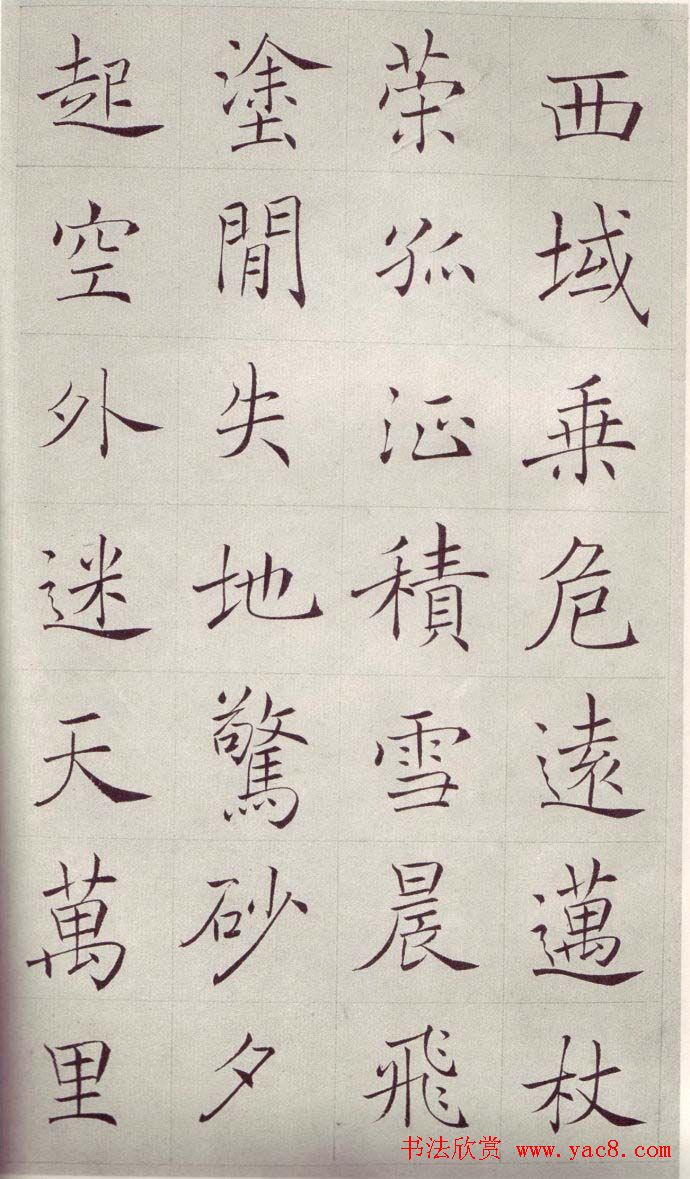 西域乗危遠邁杖
荣孤征積雪晨飛
塗閒失地驚砂夕
起空外迷天萬里
书法欣赏 www.yac8.com